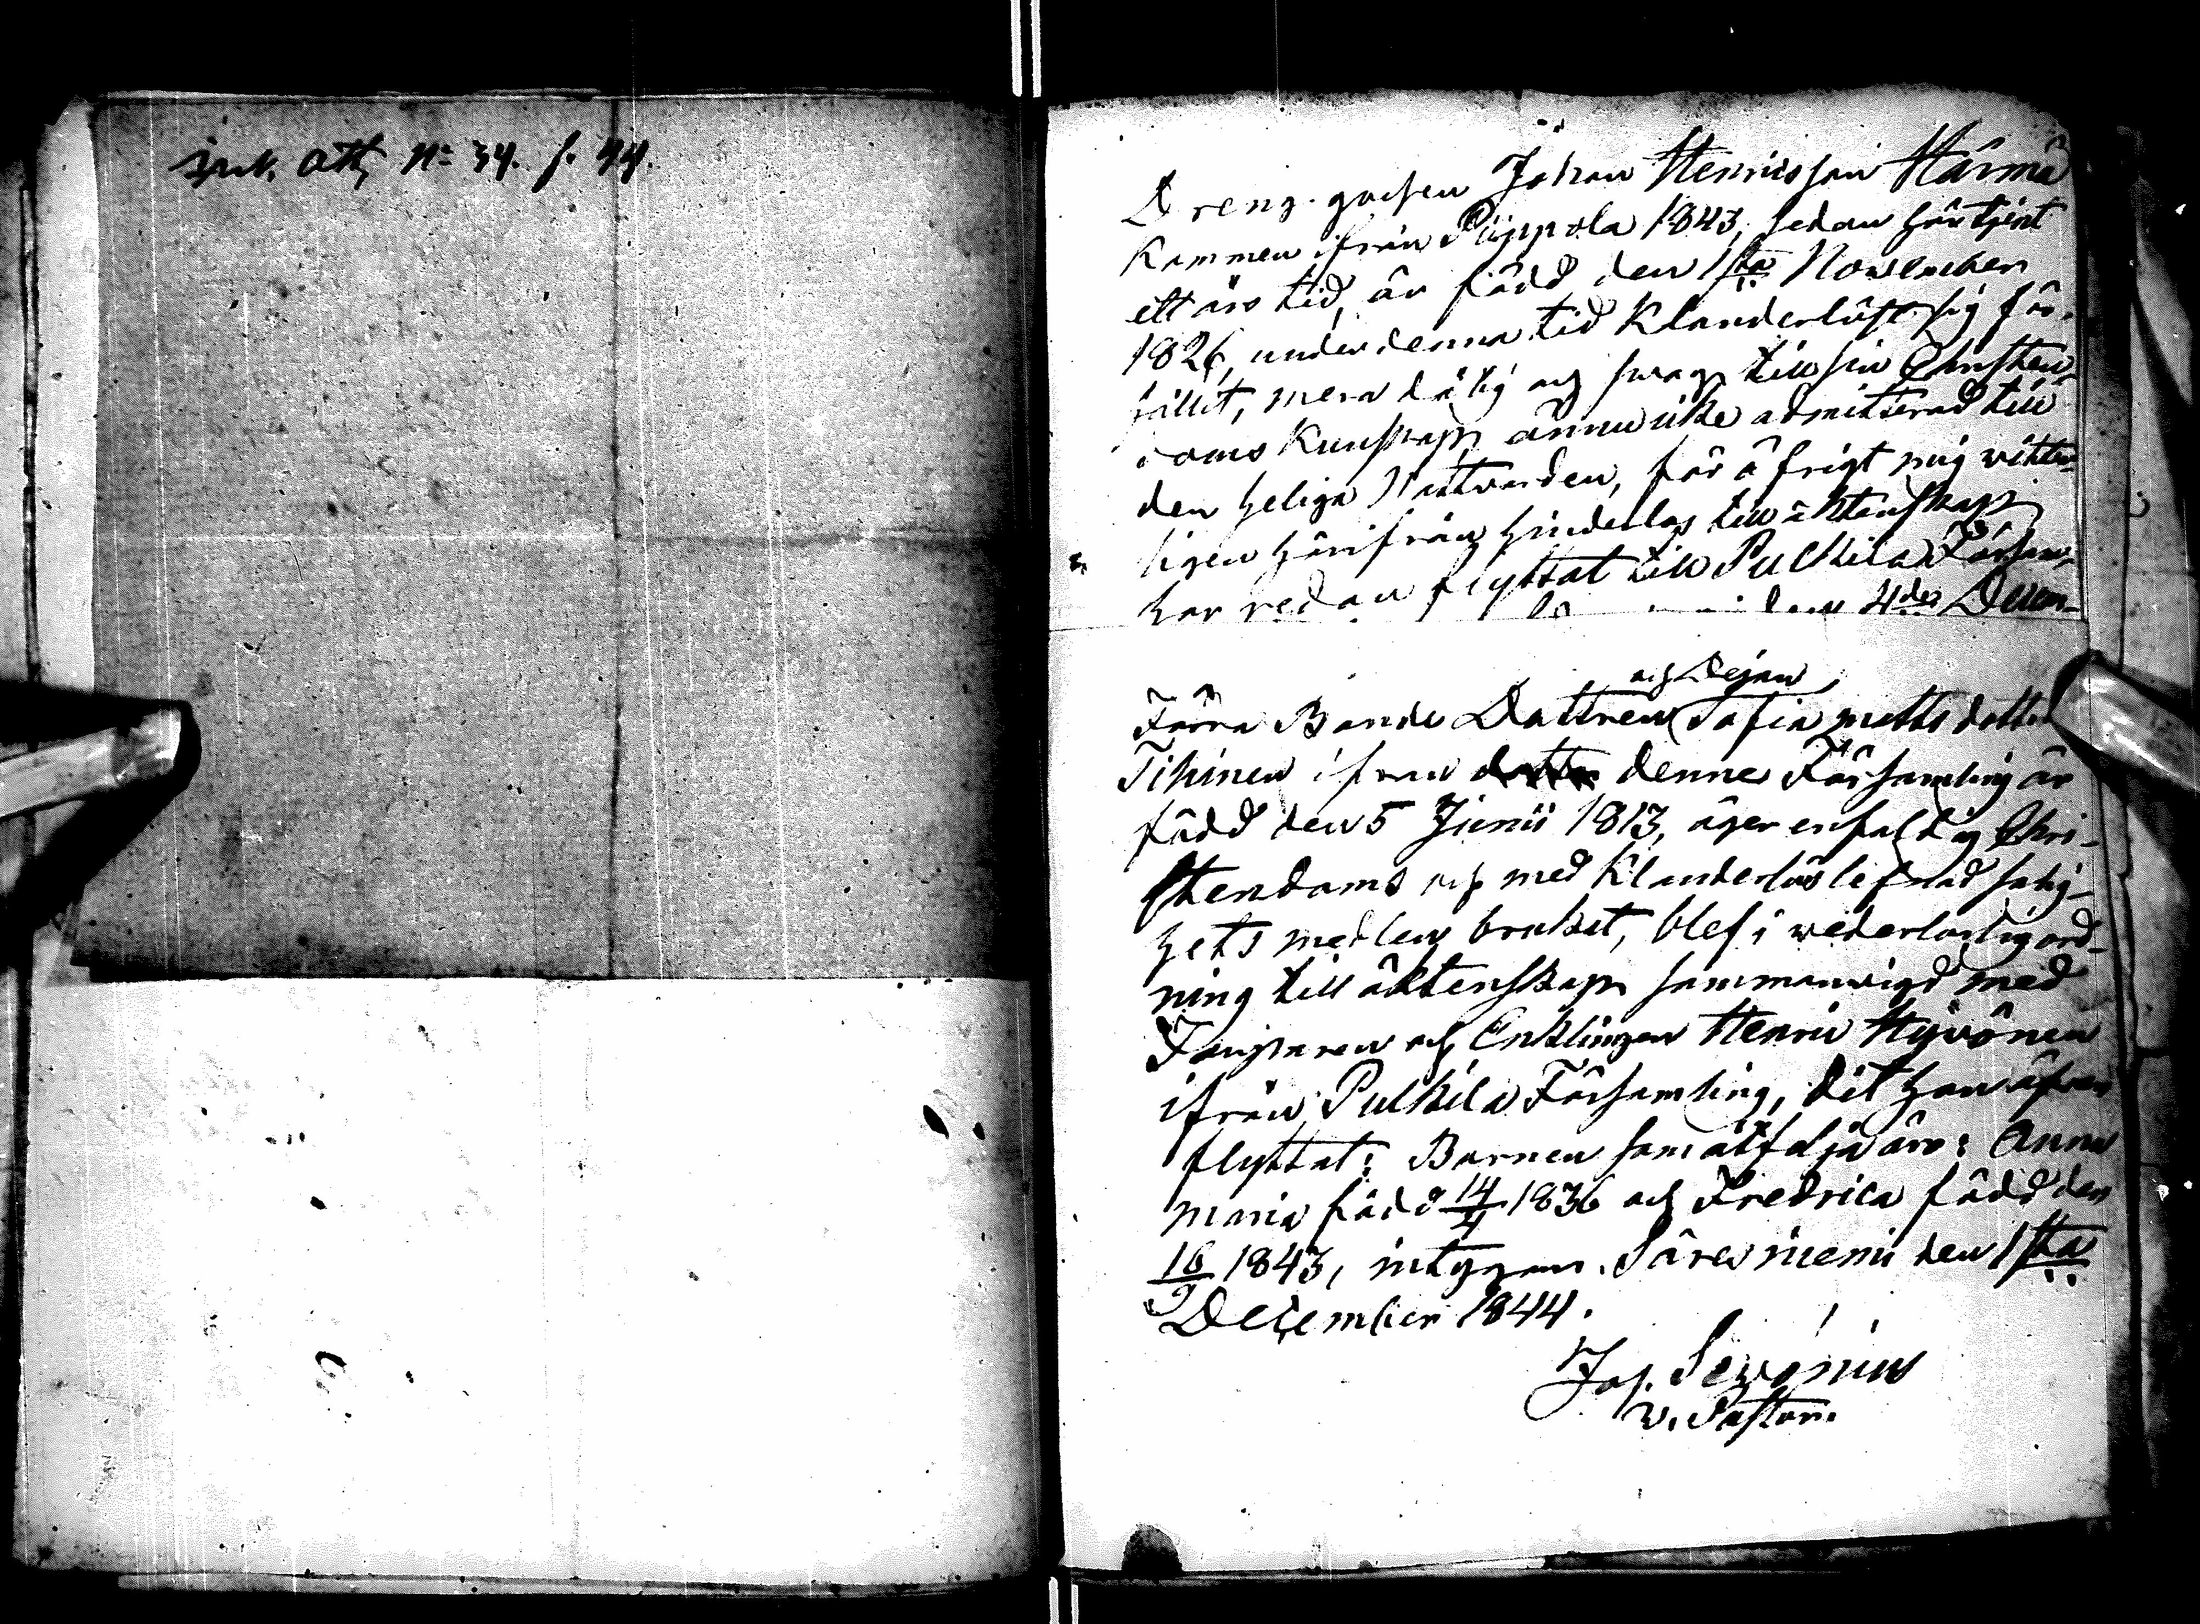 Ink. att, No 34. f. 44.
Dreng gossen Johan Henricsson Härmä
kommen ifrån Piippola 1843, sedan här tjent
ett års tid, är född den 1sta November
1826, under denna tid klanderlöst sig för-
hållit, men dålig och swag till sin Christen-
doms kunskap, ännu icke admitterad till
den heliga Nattvarden, för öfrigt mig witter-
ligen härifrån hinderlös till äktenskap
har redan flyttat till Pulkila Försam-
den 4de Decem-
och Pigan
Förra Bonde Dottren Sofia Mattsdotter
Tihinen ifrån denne Församling är
född den 5 Junii 1813, äger enfaldig Chri-
stendoms och med klanderlös lefnad salig-
hets medlen brukat, blef i wederbörlig ord-
ning till äktenskap sammanwigd med
Torparen och Enklingen Henric Hyvönen
ifrån Pulkila Församling, dit hon äfven
flyttat; Barnen som åtfölja äro: Anna
Maria född 14/4 1836 och Fredrica född den
16/9 1843, intygar. Säresniemi den 1sta
December 1844.
Jos.
v. Pastor.